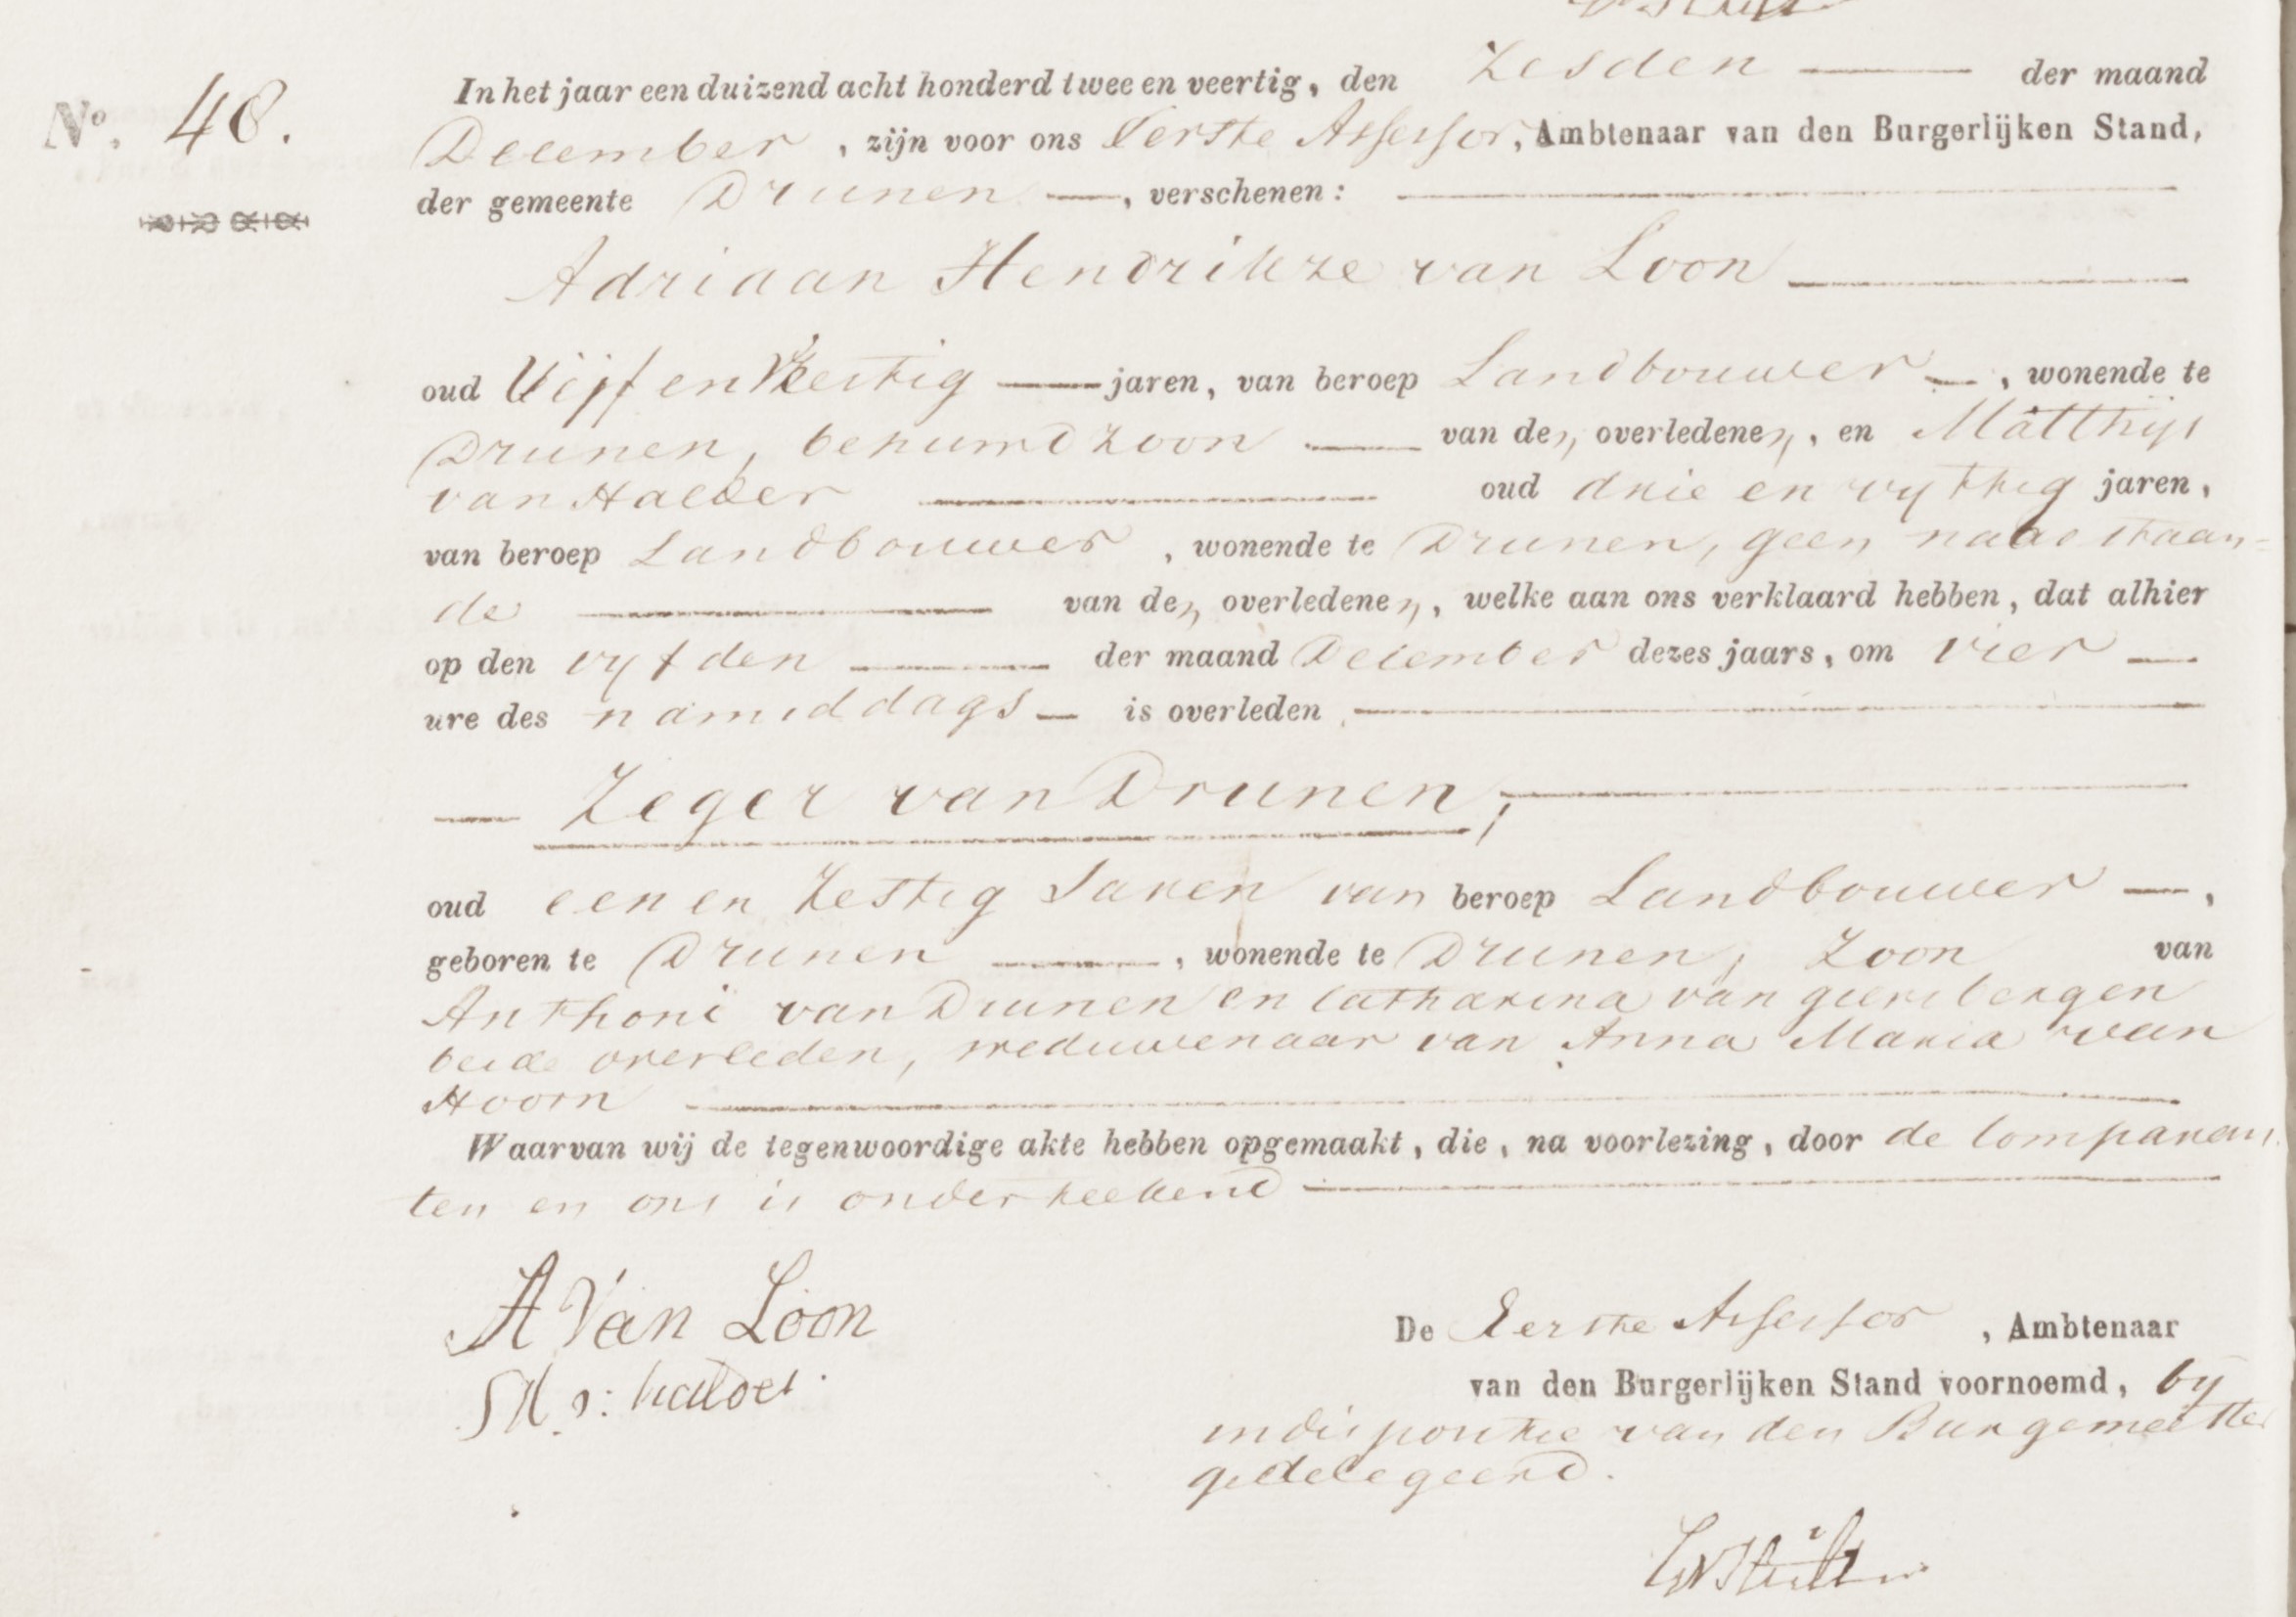 In het jaar een duizend acht honderd twee en veertig, den Zesden der maand
No. 48.
December, zijn voor ons Eerste Assessor, Ambtenaar van den Burgerlijken Stand,
der gemeente Drunen, verschenen:
Adriaan Hendrikze van Loon
oud Vijf en Veertig jaren, van beroep Landbouwer, wonende te
Drunen, behuwdzoon van den overledenen, en Matthijs
van Halder oud drie en vyftig jaren,
van beroep Landbouwer, wonende te Drunen, geen nabestaan=
de van den overledenen, welke aan ons verklaard hebben, dat alhier
op den vyfden der maand December dezes jaars, om vier
ure des namiddags is overleden
Zeger van Drunen,
oud een en Zestig Jaren van beroep Landbouwer,
geboren te Drunen, wonende te Drunen, Zoon van
Anthoni van Drunen en Catharina van
beide overleden, weduwenaar van Anna Maria van
Hoorn
Waarvan wij de tegenwoordige akte hebben opgemaakt, die, na voorlezing, door de Comparan
ten en ons is onderteekend
A Van Loon
De Eerste Assessor, Ambtenaar
M v: halder
van den Burgerlijken Stand voornoemd, by
indispositie van den Burgemeester
gedelegeerd.